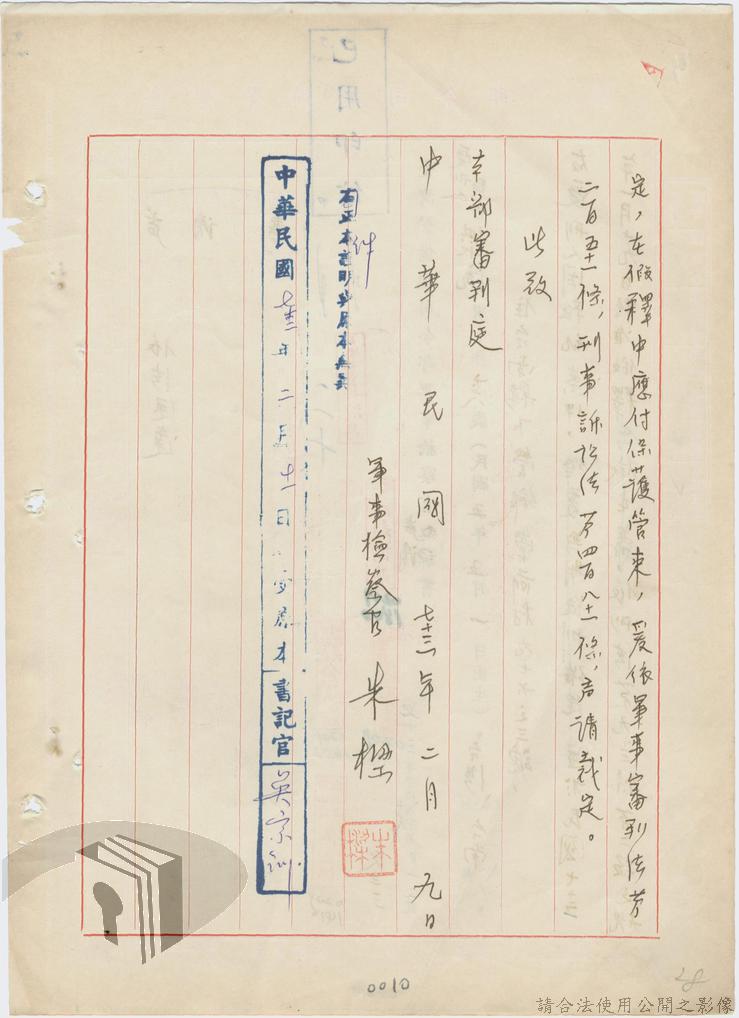 已用印
定，在假釋中應付保護管束，爰依軍事審判法第
二百五十一條，刑事訴訟法第四百八十一條，聲請裁定。
此致
本部審判庭
中華民國七十三年二月九日
軍事檢察官 朱樑
朱樑
右正本證明與原本無異
中華民國七十三年二月十一日 原本書記官吳宗
0010
28
請合法使用公開之影像